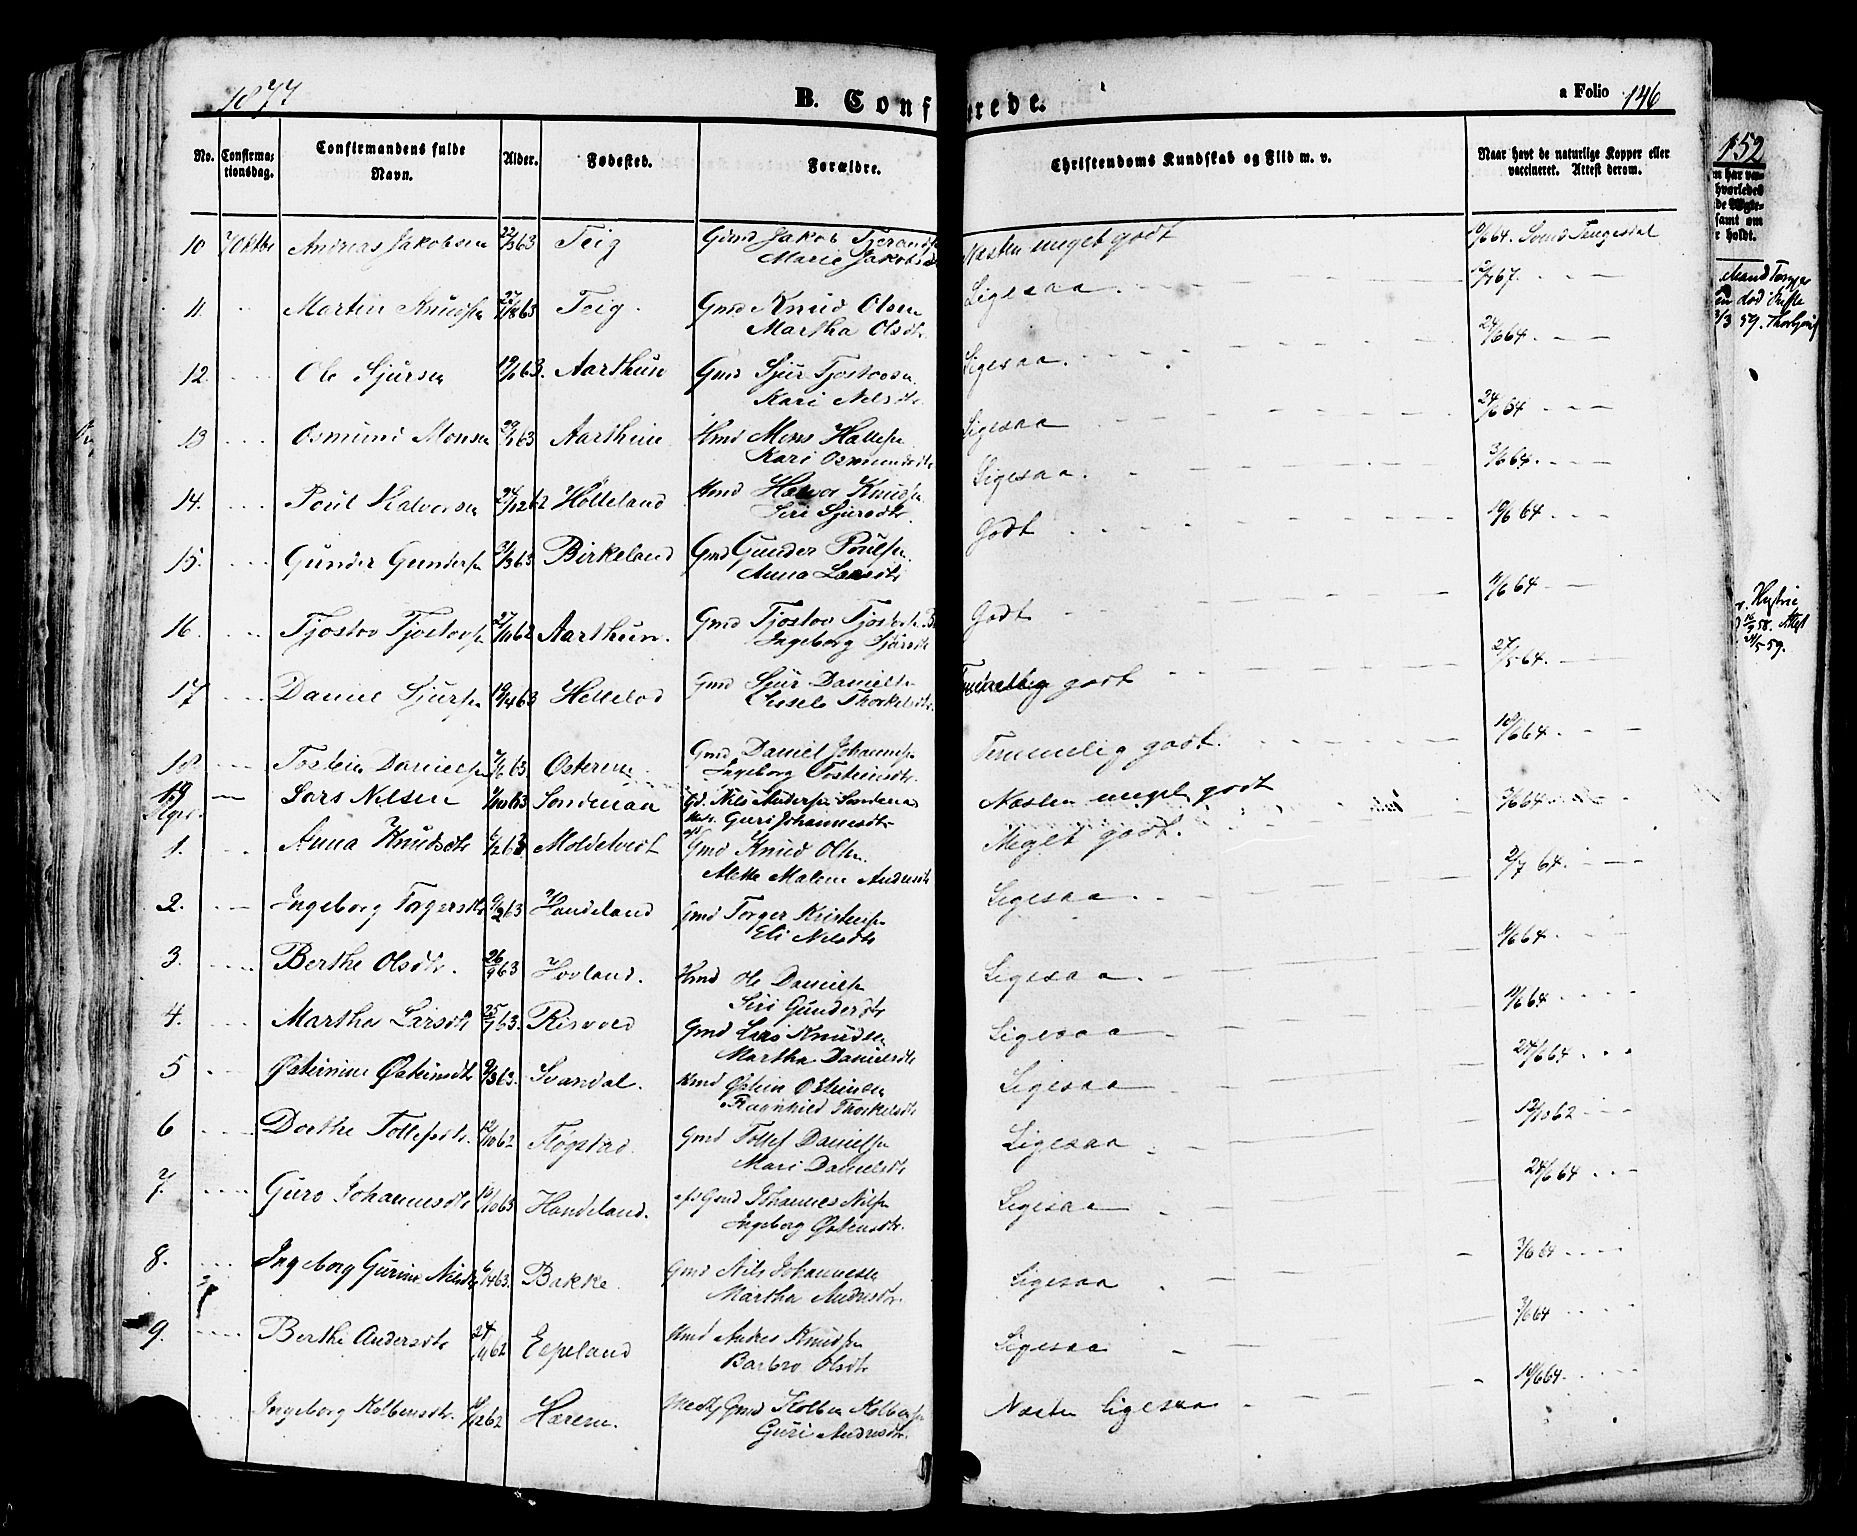 1877 B. Conf rede. a Folio 146
No. Confirma-tionsdag. Confirmandens fulde Navn. Alder. Fødested. Forældre. Christendoms Kundskab og Flid m. v. Naar havt de naturlige Kopper eller vaccineret. Attest derom.
10 7 Oktbr Andreas Jakobsen 22/3 63 Teig Gmd Jakob
Marie Jakobsd Næsten meget godt 64. Svend Tengesdal
11 Martin Knudsen 27/8 63 Teig. Gmd Knud Olsen
Martha Olsdtr. Ligesaa. 67.
12 Ole Sjursen 63. Aarthun Gmd Sjur Tjostovsen
Kari Nilsdtr Ligesaa. 24/6 64.
13 Osmund Monsen 63 Aarthun Hmd Mons Hallesen
Kari Osmundsdtr Ligesaa 24/6 64
14. Poul Halvorsen 24/12 62 Hølleland Hmd Halvor Knudsen
Siri Sjursdtr. Ligesaa. 3/6 64.
15. Gunder Gundersen 31/3 63 Birkeland Gmd Gunder Poulsen
Anna Larsdtr Godt 10/6 64
16. Tjostov Tjostovsen 27/11 62 Aarthun. Gmd Tjostov
Ingeborg Sjursdtr Godt 64
17 Daniel Sjursen 19/4 63 Gmd Sjur Danielsen
Thorkelsdtr. Temmelig godt 27/5 64.
18 Tostein Danielsen 63 Østerem Gmd Daniel Johannesen
Ingeborg Tosteinsdtr. Temmelig godt. 10/6 64
19 Lars Nilsen 63 Sondenaa Gd. Nils Andersen Sondenaa
Guri Johannesdtr Næsten meget godt 3/6 64
1. Anna Knudsdtr 6/2 63 Moldetvedt Gmd Knud Olsen.
Mette Malene Andersdtr Meget godt. 2/7 64.
2. Ingeborg Torgersdtr 9/2 63 Handeland Gmd Torger Kristensen
Eli Nilsdtr Ligesaa. 64
3. Berthe Olsdtr. 26/9 63 Hovland. Hmd Ole Danielsen
Siri Gundersdtr Ligesaa. 64
4. Martha Larsdtr 63. Risvold Gmd Lars Knudsen
Martha Danielsdtr Ligesaa 24/6 64
5 Østeinine Østeinsdtr 9/3 63. Svandal. Hmd Østein Østeinsen
Ragnhild Thorkelsdtr Ligesaa 12/10 62
6 Dorthe Tollefsdtr. 12/10 62 Fløgstad. Gmd Tollef Danielsen
Mari Danielsdtr Ligesaa 24/6 64
7. Guro Johannesdtr 63 Handeland. Gmd Johannes Nilsen
Ingeborg Østensdtr. Ligesaa 3/6 64
8. Ingeborg Gurine Nilsdtr 6/4 63. Bakke. Gmd Nils Johannesen
Martha Andersdtr. Ligesaa 3/6 64
9. Berthe Andersdtr 24/11 62 Espeland Hmd Anders Knudsen
Barbro Olsdtr Ligesaa 10/6 64.
Ingeborg Kolbensdtr. 62 Hærem. Gmd Kolben Kolbensen
Guri Andersdtr. Næsten Ligesaa
152